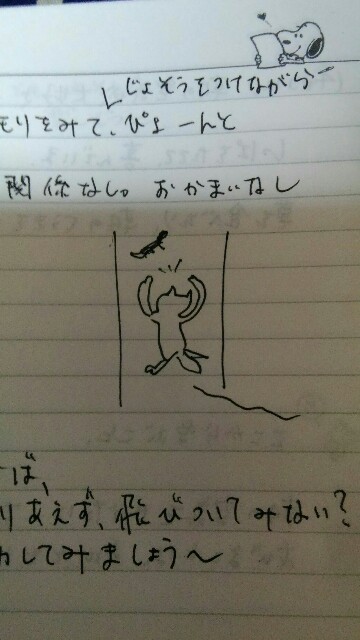 じょそうをつけながらー
モリをみて、ぴょーんと
関係なし。おかまいなし
ば、
りあえず、飛びついてみない?
してみましょう〜